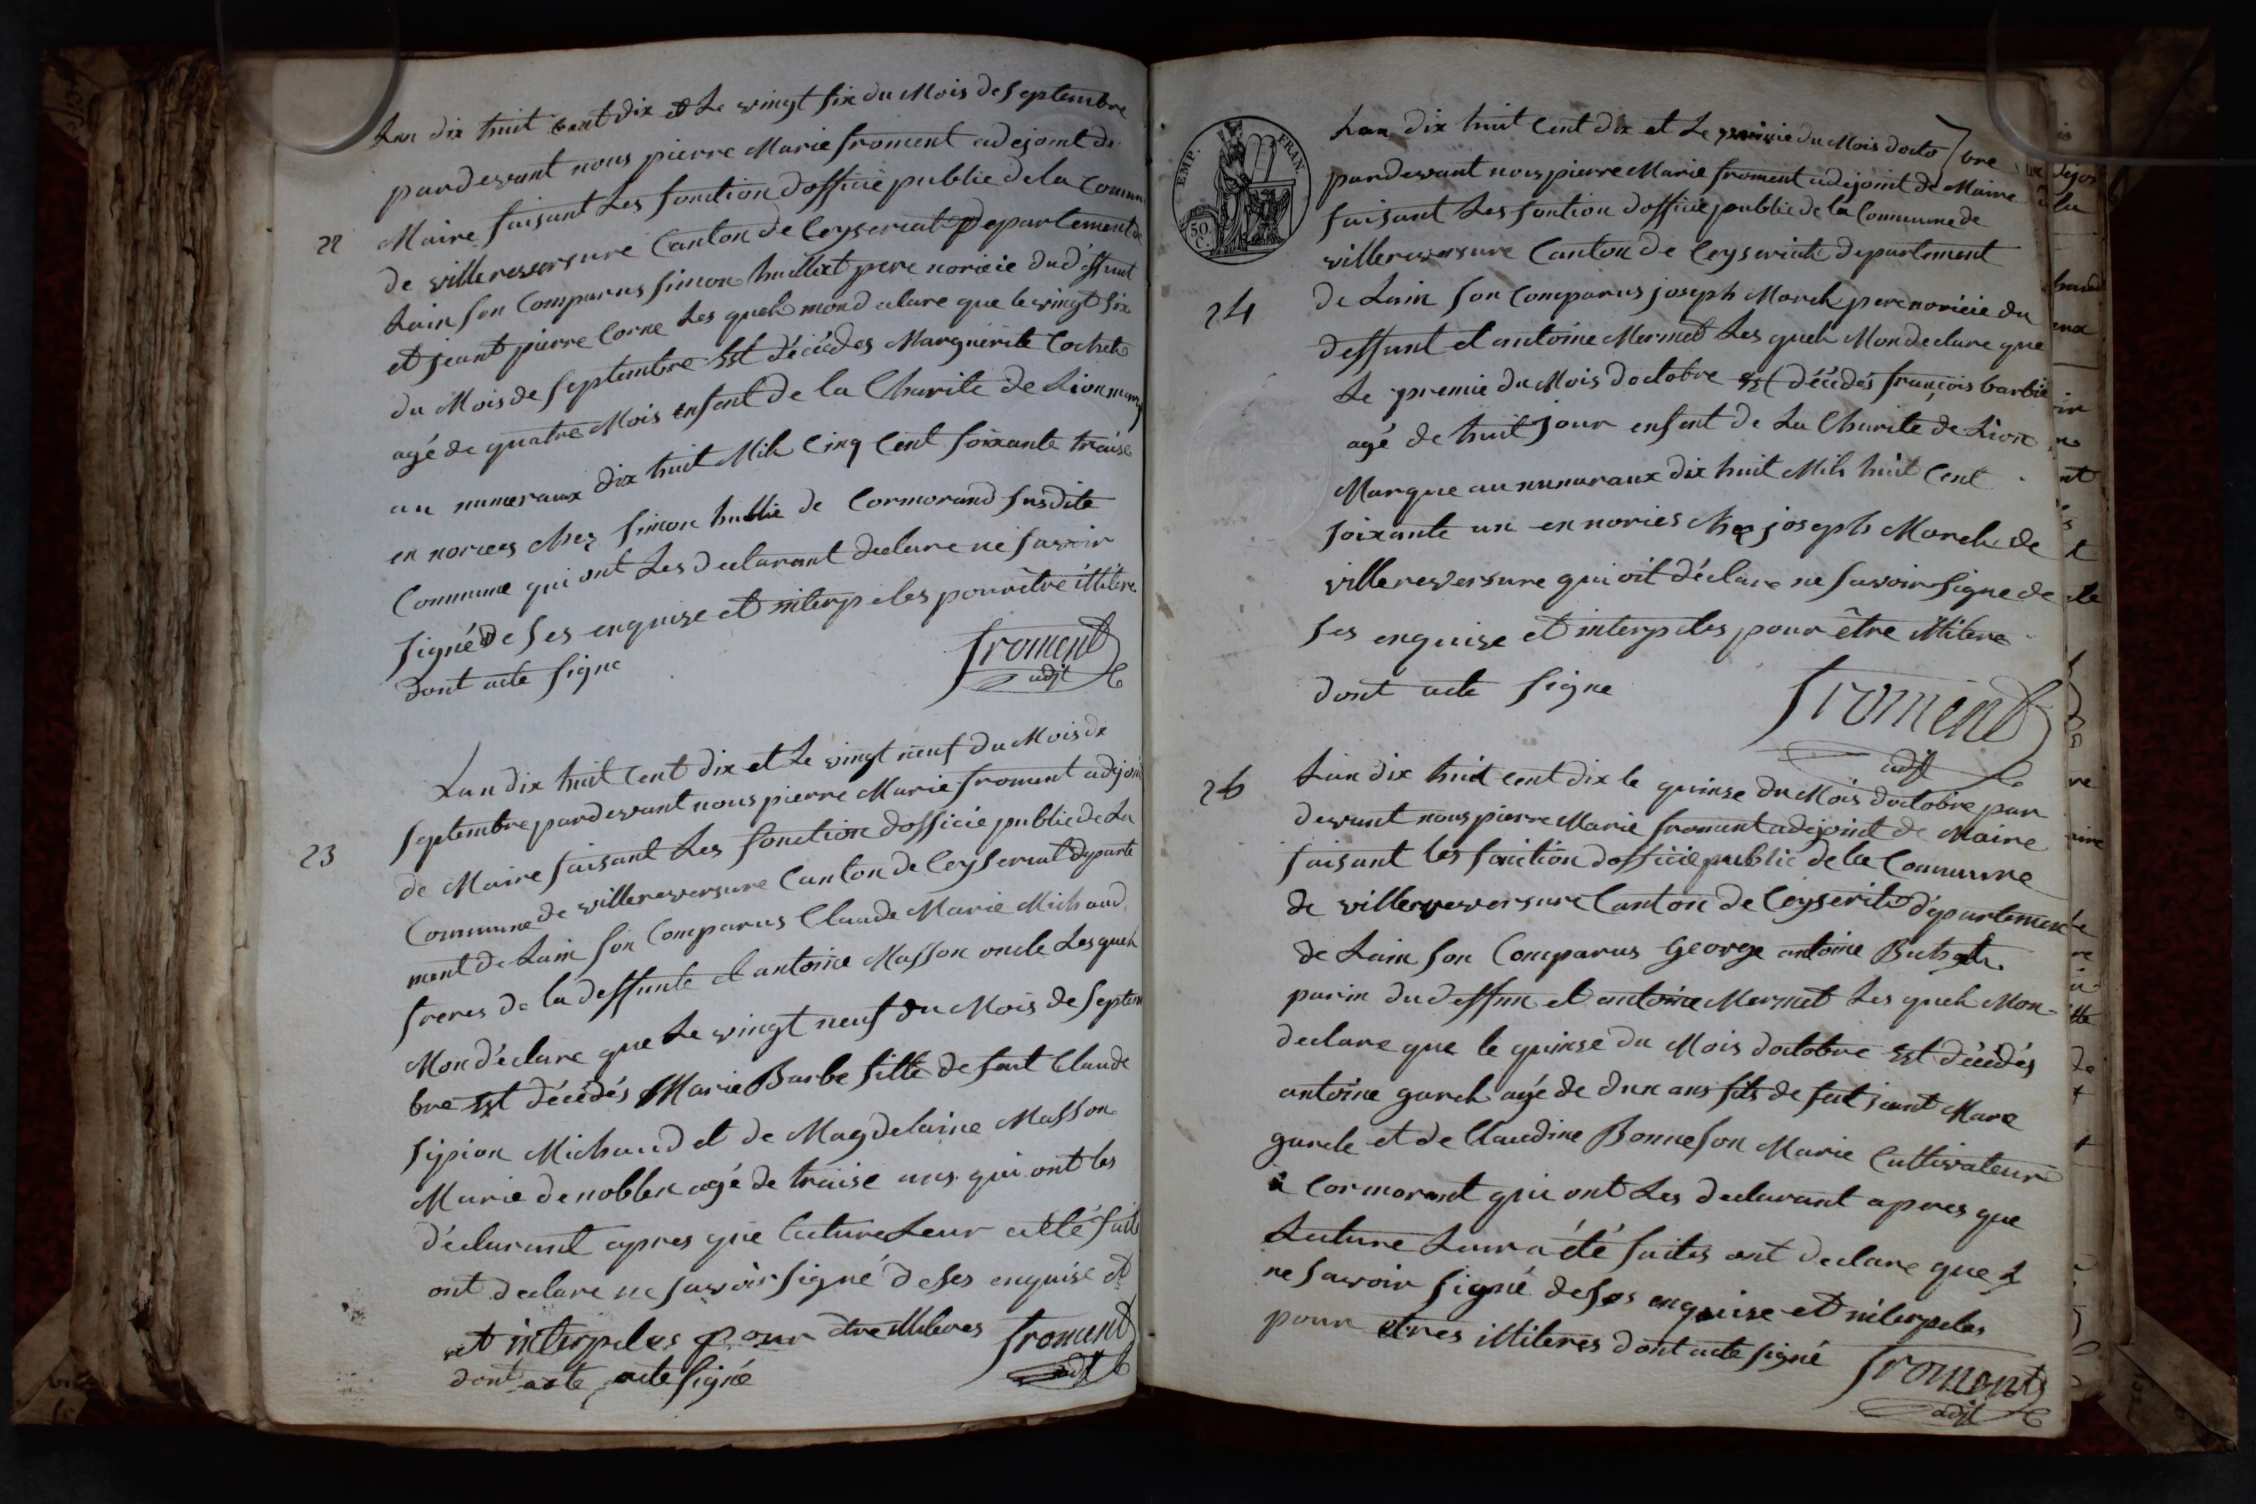 Lan dix huit Cent dix et Le vingt six du Mois de Septembre
pardevant nous pierre Marie froment adejoint de
22
Maire faisant Les fonction dofficie public de la Commun
de villereversure Canton de Ceyseriat Departement de
Lain son Comparus Simon huilliet pere noricie du déffunt
et jeant pierre Corne Les quels mond delare que le vingt six
du Mois de Septembre Est décédes Marguerite Cochet
agé de quatre Mois enfent de la Charite de Lion
au numeraux dix huit Mile Cinq Cent soixante traise
en norices chez Simon de Cormorand susdite
Commune qui ont Les declarant declare ne savoir
signé de ses enquise et interpeles pour être illitere
dont acte signe
froment
adjt
Lan dix huit Cent dix et Le vingt neuf du Mois de
Septembre pardevant nous pierre Marie froment adejoin
23
de Maire faisant Les fonction dofficie public de La
Commune de villereversure Canton de Ceyseriat departe
ment de Lain son Comparus Claude Marie Michaud
freres de la deffunte et antoine Masson oncle Lesquels
Mon déclare que Le vingt neuf du Mois de Septem
bre Est décédés Marie Barbe fille de feut Claude
Sipion Michaud et de Magdelaine Masson
Marie denobles agé de traise ans qui ont les
déclarant apres que lecture Leur a été faite
ont declare ne savoir signé de ses enquise et
et interpeles pour etre illiteres
dont acte acte signé
froment
adjt
EMP. FRAN.
50 C.
Lan dix huit Cent dix et Le premie du Mois docto bre
pardevant nous pierre Marie froment adejoint de Maire
faisant Les fontion dofficie public de la Commune de
villereversure Canton de Ceyseriat departement
24
de Lain son Comparus joseph Morel pere noricie du
deffunt et antoine Mermet Les quels Mon declare que
Le premie du Mois doctobre Est décédés françois barbie
agé de huit jour enfent de La Charite de Lion
Marque au numuraux dix huit Mils huit Cent
soixante un en nories chez joseph Morel de
villereversure qui oit déclare ne savoir signe de
ses enquise et interpeles pour être illitere
dont acte signe
froment
adjt
25
Lan dix huit cent dix le quinse du Mois doctobre par
devant nous pierre Marie froment adejoint de Maire
faisant les fonction dofficie public de la Commune
de villereversure Canton de Ceyserite département
de Lain son Comparus George antoine
parin du deffun et antoine Mermet Les quels Mon
declare que le quinse du Mois doctobre Est décédés
antoine garel agé de deux ans fils de feut jeant Marie
garele et de Claudine Bonneson Marie Cultivateuri
à Cormorant qui ont Les declarant apres que
Lecture Leur a été faites ont declare que
ne savoir signé de ses enquise et interpeles
pour etres illiteres dont acte signé
froment
adjt